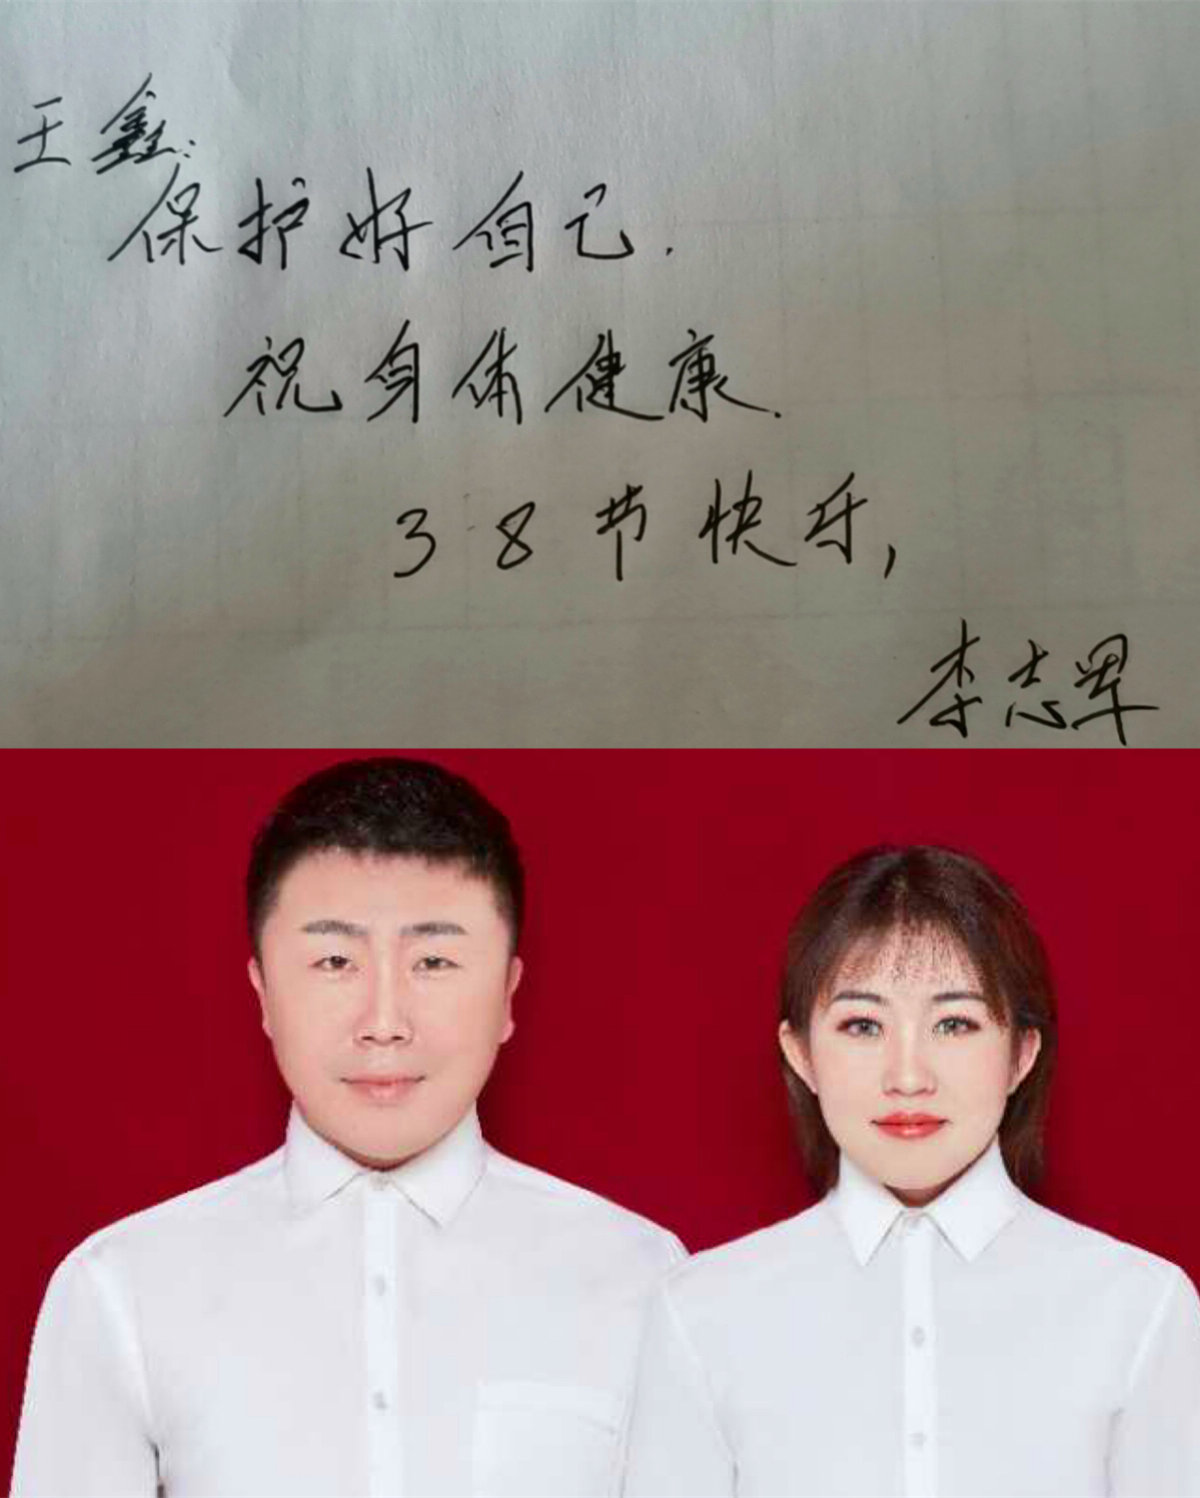 王鑫:
保护好自己.
祝身体健康.
38节快乐,
李志军